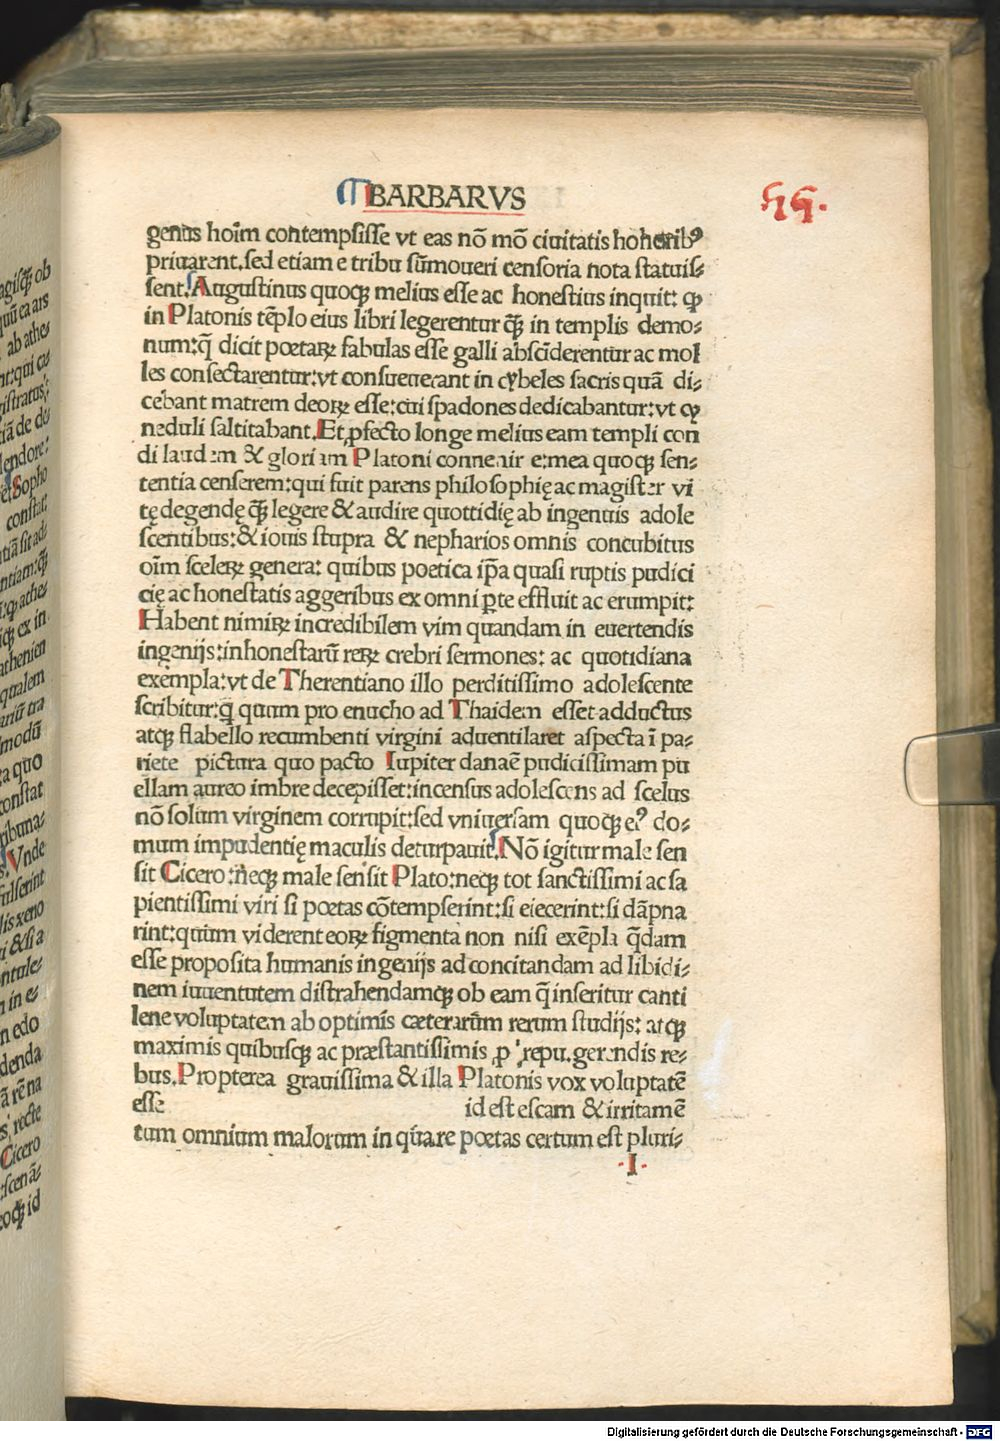 BARBARVS
55.
genus hoīm contempsisse vt eas nō mō ciuitatis honorib⁹
priuarent.sed etiam e tribu sūmoueri censoria nota statuis⸗
sent.Augustinus quoqꝫ melius esse ac honestius inquit: ꝙ
in Platonis tēplo eius libri legerentur ꝙ̄ in templis demo⸗
num:q̄ dicit poetaꝝ fabulas esse galli absciderentur ac mol
les consectarentur:vt consueuerant in cybeles sacris quā di⸗
cebant matrem deoꝝ esse:cui spadones dedicabantur:vt cy
neduli saltitabant.Et ꝓfecto longe melius eam templi con
di laudem & gloriam Platoni conuenire:mea quoqꝫ sen⸗
tentia censerem:qui fuit parens philosophię ac magister vi
tę degendę ꝙ̄ legere & audire quottidię ab ingenuis adole
scentibus:& iouis stupra & nepharios omnis concubitus
oīm sceleꝝ genera: quibus poetica ip̄a quasi ruptis pudici
cię ac honestatis aggeribus ex omni ꝑte effluit ac erumpit:
Habent nimiꝝ incredibilem vim quandam in euertendis
ingenijs:inhonestarū reꝝ crebri sermones: ac quotidiana
exempla:vt de Therentiano illo perditissimo adolescente
scribitur:q̄ quum pro enucho ad Thaidem esset adductus
atqꝫ flabello recumbenti virgini aduentilaret aspecta ī pa⸗
riete pictura quo pacto Iupiter danaē pudicissimam pu
ellam aureo imbre decepisset:incensus adolescens ad scelus
nō solum virginem corrupit:sed vniuersam quoqꝫ ei⁹ do⸗
mum impudentię maculis deturpauit.Nō igitur male sen
sit Cicero:neqꝫ male sensit Plato:neqꝫ tot sanctissimi ac sa
pientissimi viri si poetas cōtempserint:si eiecerint:si dāpna
rint:quum viderent eoꝝ figmenta non nisi exēpla q̄dam
esse proposita humanis ingenijs ad concitandam ad libidi⸗
nem iuuentutem distrahendamqꝫ ob eam q̄ inseritur canti
lene voluptatem ab optimis cæterarūm rerum studijs: atqꝫ
maximis quibusqꝫ ac præstantissimis ꝓ repu.gerendis re⸗
bus.Propterea grauissima & illa Platonis vox voluptatē
esse id est escam & irritamē
tum omnium malorum in quare poetas certum est pluri⸗
.I.
Digitalisierung gefördert durch die Deutsche Forschungsgemeinschaft - DFG